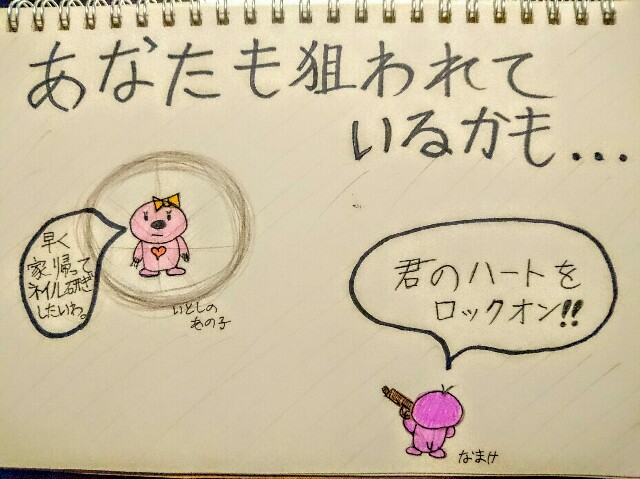 あなたも狙われて
いるかも...
早く
家帰って
ネイル研ぎ
したいわ。
いとしの
あの子
君のハートを
ロックオン!!
なまけ